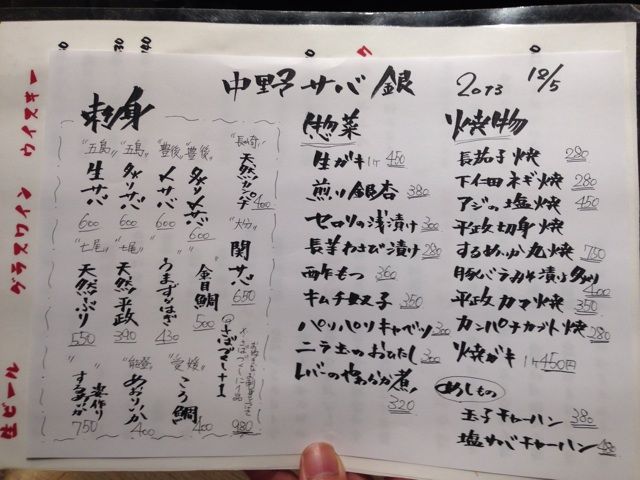 中野サバ銀 2013 12/5
刺身
"長崎" 天然カンパチ 400
"大分" 関サバ 650
"豊後" 炙り〆サバ 600
"豊後" 〆サバ 600
"五島" 炙りサバ 600
"五島" 生サバ 600
金目鯛 500
うまづらはぎ 430
"七尾" 天然平政 390
"七尾" 天然ぶり 550
980
"愛媛" こう鯛 400
"能登" あおりいか 400
姿作り 750
惣菜
生ガキ 1ヶ 450
煎り銀杏 380
セロリの浅漬け 300
長芋わさび漬け 280
酉酢もつ 360
キムチ奴 350
パリパリキャベツ 300
ニラ玉のおひたし 300
レバーのやわらか煮 320
焼物
長茄子焼 280
下仁田ネギ焼 280
アジの塩焼 450
平政切身焼
するめいか丸焼 750
400
平政カマ焼 350
カンパチカット焼 280
焼ガキ 1ヶ450円
めしもの
玉子チャーハン 380
塩サバチャーハン
ウイスキー
グラスワイン
生ビール